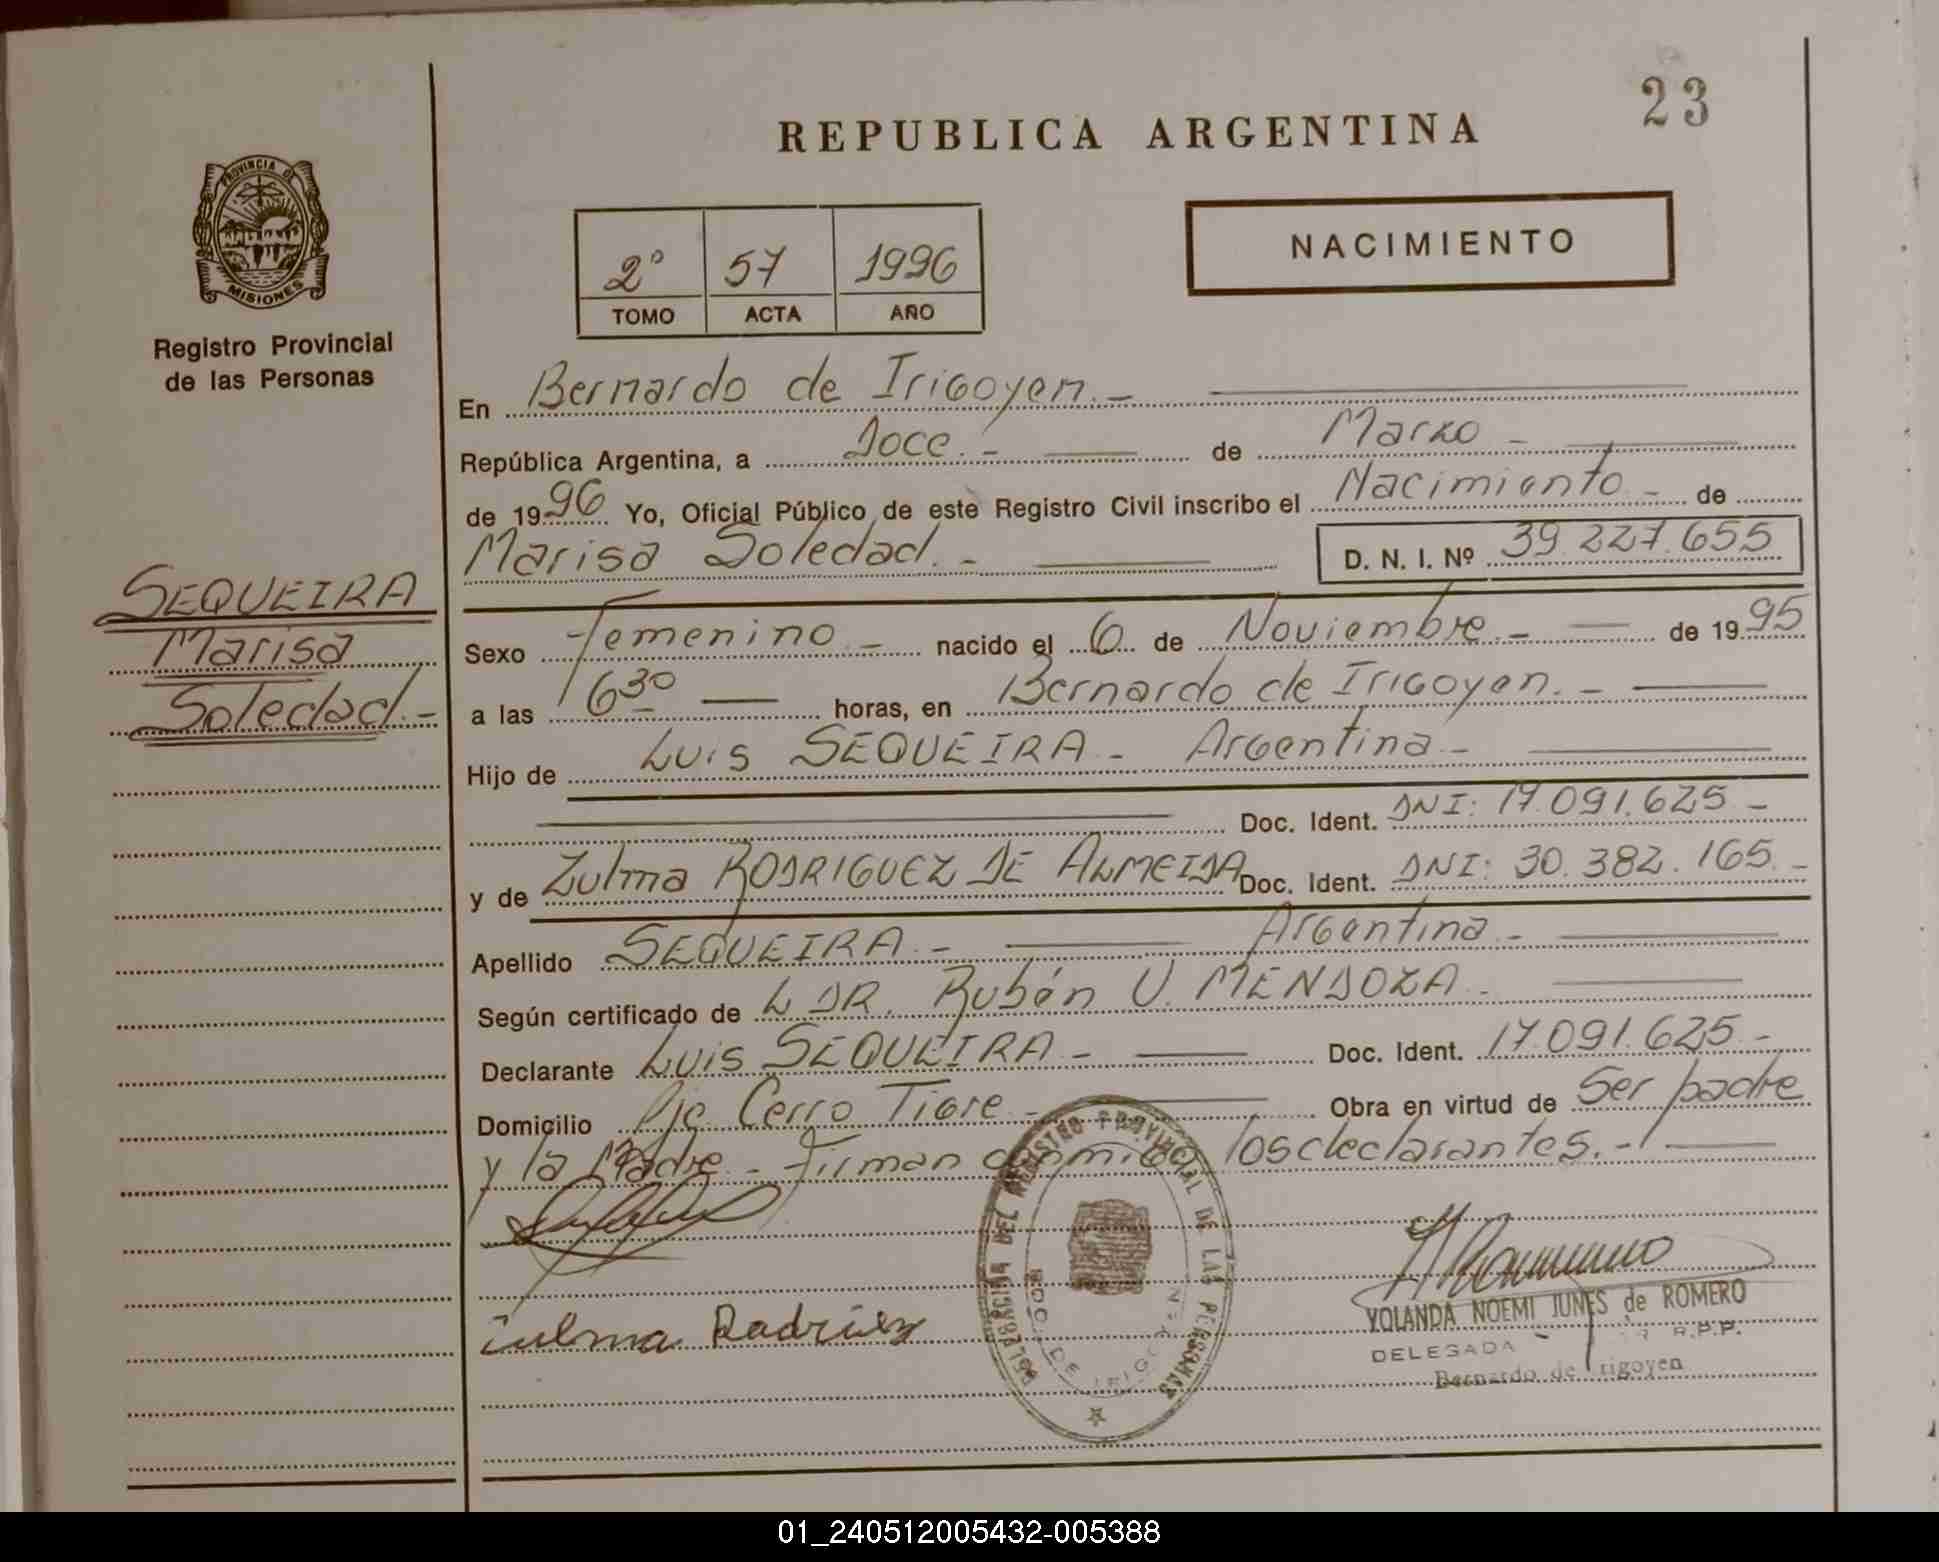 23
REPUBLICA ARGENTINA
PROVINCIA DE
MISIONES
Registro Provincial
de las Personas
2º 57 1996
TOMO ACTA AÑO
NACIMIENTO
En Bernardo de Irigoyen.-
República Argentina, a Doce.- de Marzo -
de 1996 Yo, Oficial Público de este Registro Civil inscribo el Nacimiento - de
Marisa Soledad.- D. N. I. Nº 39.227.655
SEQUEIRA
Marisa
Soledad.-
Sexo Femenino - nacido el 6 de Noviembre.- de 1995
a las 6 30 horas, en Bernardo de Irigoyen.-
Hijo de Luis SEQUEIRA - Argentina -
Doc. Ident. DNI: 17.091.625 -
y de Zulma RODRIGUEZ DE ALMEIDA Doc. Ident. DNI: 30.382.165.-
Apellido SEQUEIRA - Argentina -
Según certificado de L DR. Rubén U. MENDOZA -
Declarante Luis SEQUEIRA - Doc. Ident. 17.091.625 -
Domicilio Pje Cerro Tigre - Obra en virtud de Ser padre
y la Madre - Firman conmigo los declarantes.-
DELEGACION DEL REGISTRO PROVINCIAL DE LAS PERSONAS
BDO. DE IRIGOYEN
YOLANDA NOEMI JUNES de ROMERO
DELEGADA R.P.P.
Bernardo de Irigoyen
01_240512005432-005388